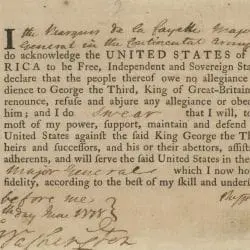 I the Marquis de la Fayette Major
General in the Continental Army
do acknowledge the UNITED STATES of
RICA to be Free, Independent and Sovereign Sta
declare that the people thereof owe no allegiance
dience to George the Third, King of Great-Britain
renounce, refuse and abjure any allegiance or obe
him; and I do Swear that I will, to
most of my power, support, maintain and defend
United States against the said King George the Th
heirs and successors, and his or their abettors, assist
adherents, and will serve the said United States in the
Major General which I now ho
fidelity, according to the best of my skill and under
before me
day June 1778
Washington